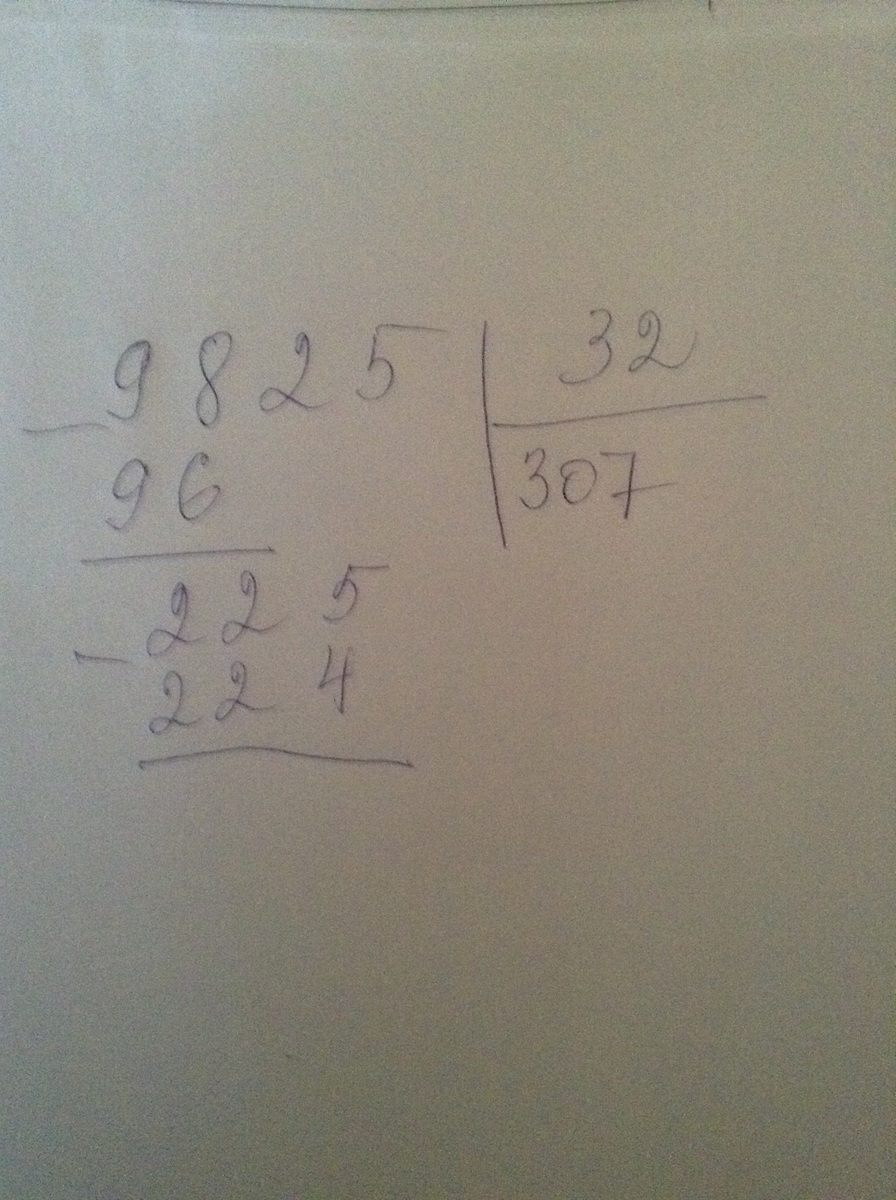 9825 | 32
- 96 | 307
225
- 224